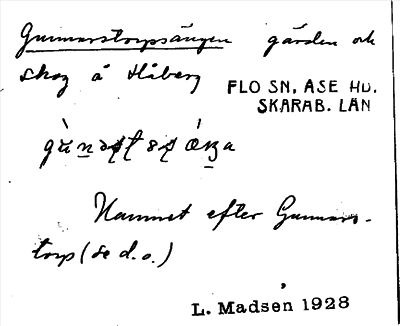 Gunnarstorpsängen gården och
skog å Håberg
FLO SN, ÅSE HD.
SKARAB. LÄN
Namnet efter Gunnars-
torp (se d.o.)
L. Madsen 1928